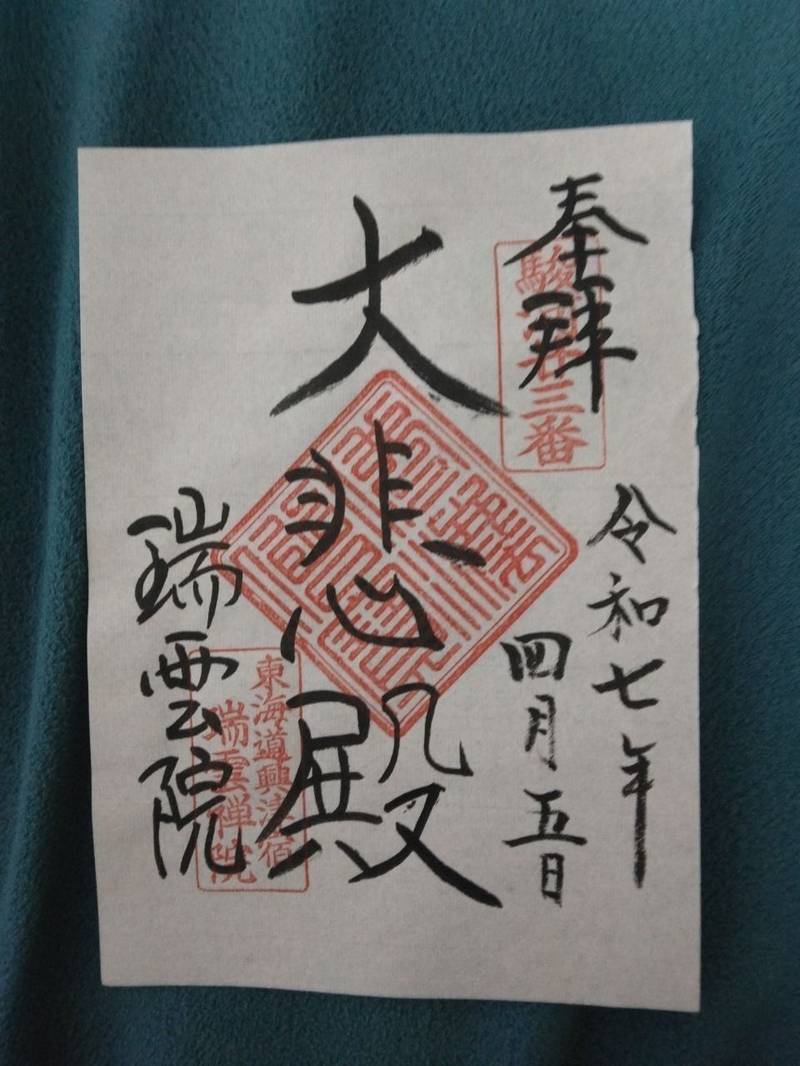 奉拝
令和七年
四月五日
大悲殿
瑞雲院
東海道興津宿
瑞雲禅院
三番